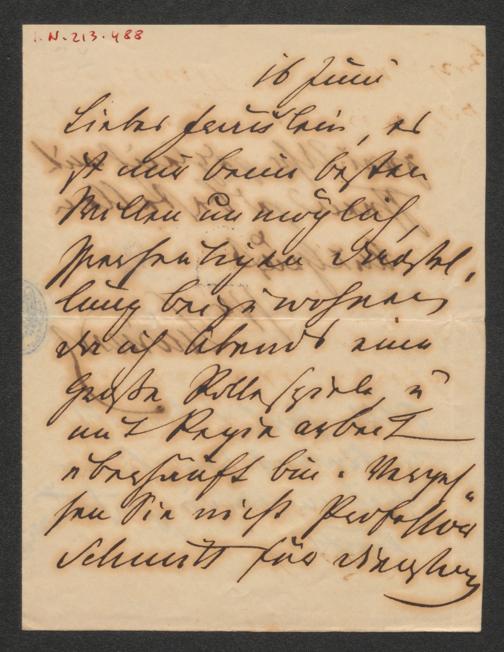 I.N. 213.488
16 Juni
Liebes Fräulein, es
ist mir beim besten
Willen unmöglich,
Vorstel,
lung beizuwohnen
da ich Abends eine
große Rolle spiele, u
mit Regiearbeit
überhäuft bin. Verges
sen Sie nicht Professor
Schmitt für